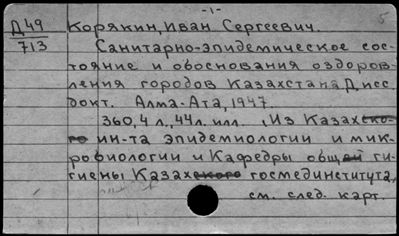 -1-
5
Д 49
713
Корякин, Иван Сергеевич.
Санитарно-эпидемическое сос-
тояние и обоснования оздоров-
ления городов Казахстана Дисс.
докт. Алма-Ата, 1947.
360, 4 л., 44 л. илл. (Из Казахско-
го ин-та эпидемиологии и мик-
робиологии и Кафедры общей ги-
гиены Казахского госмединститута,
см. след. карт.